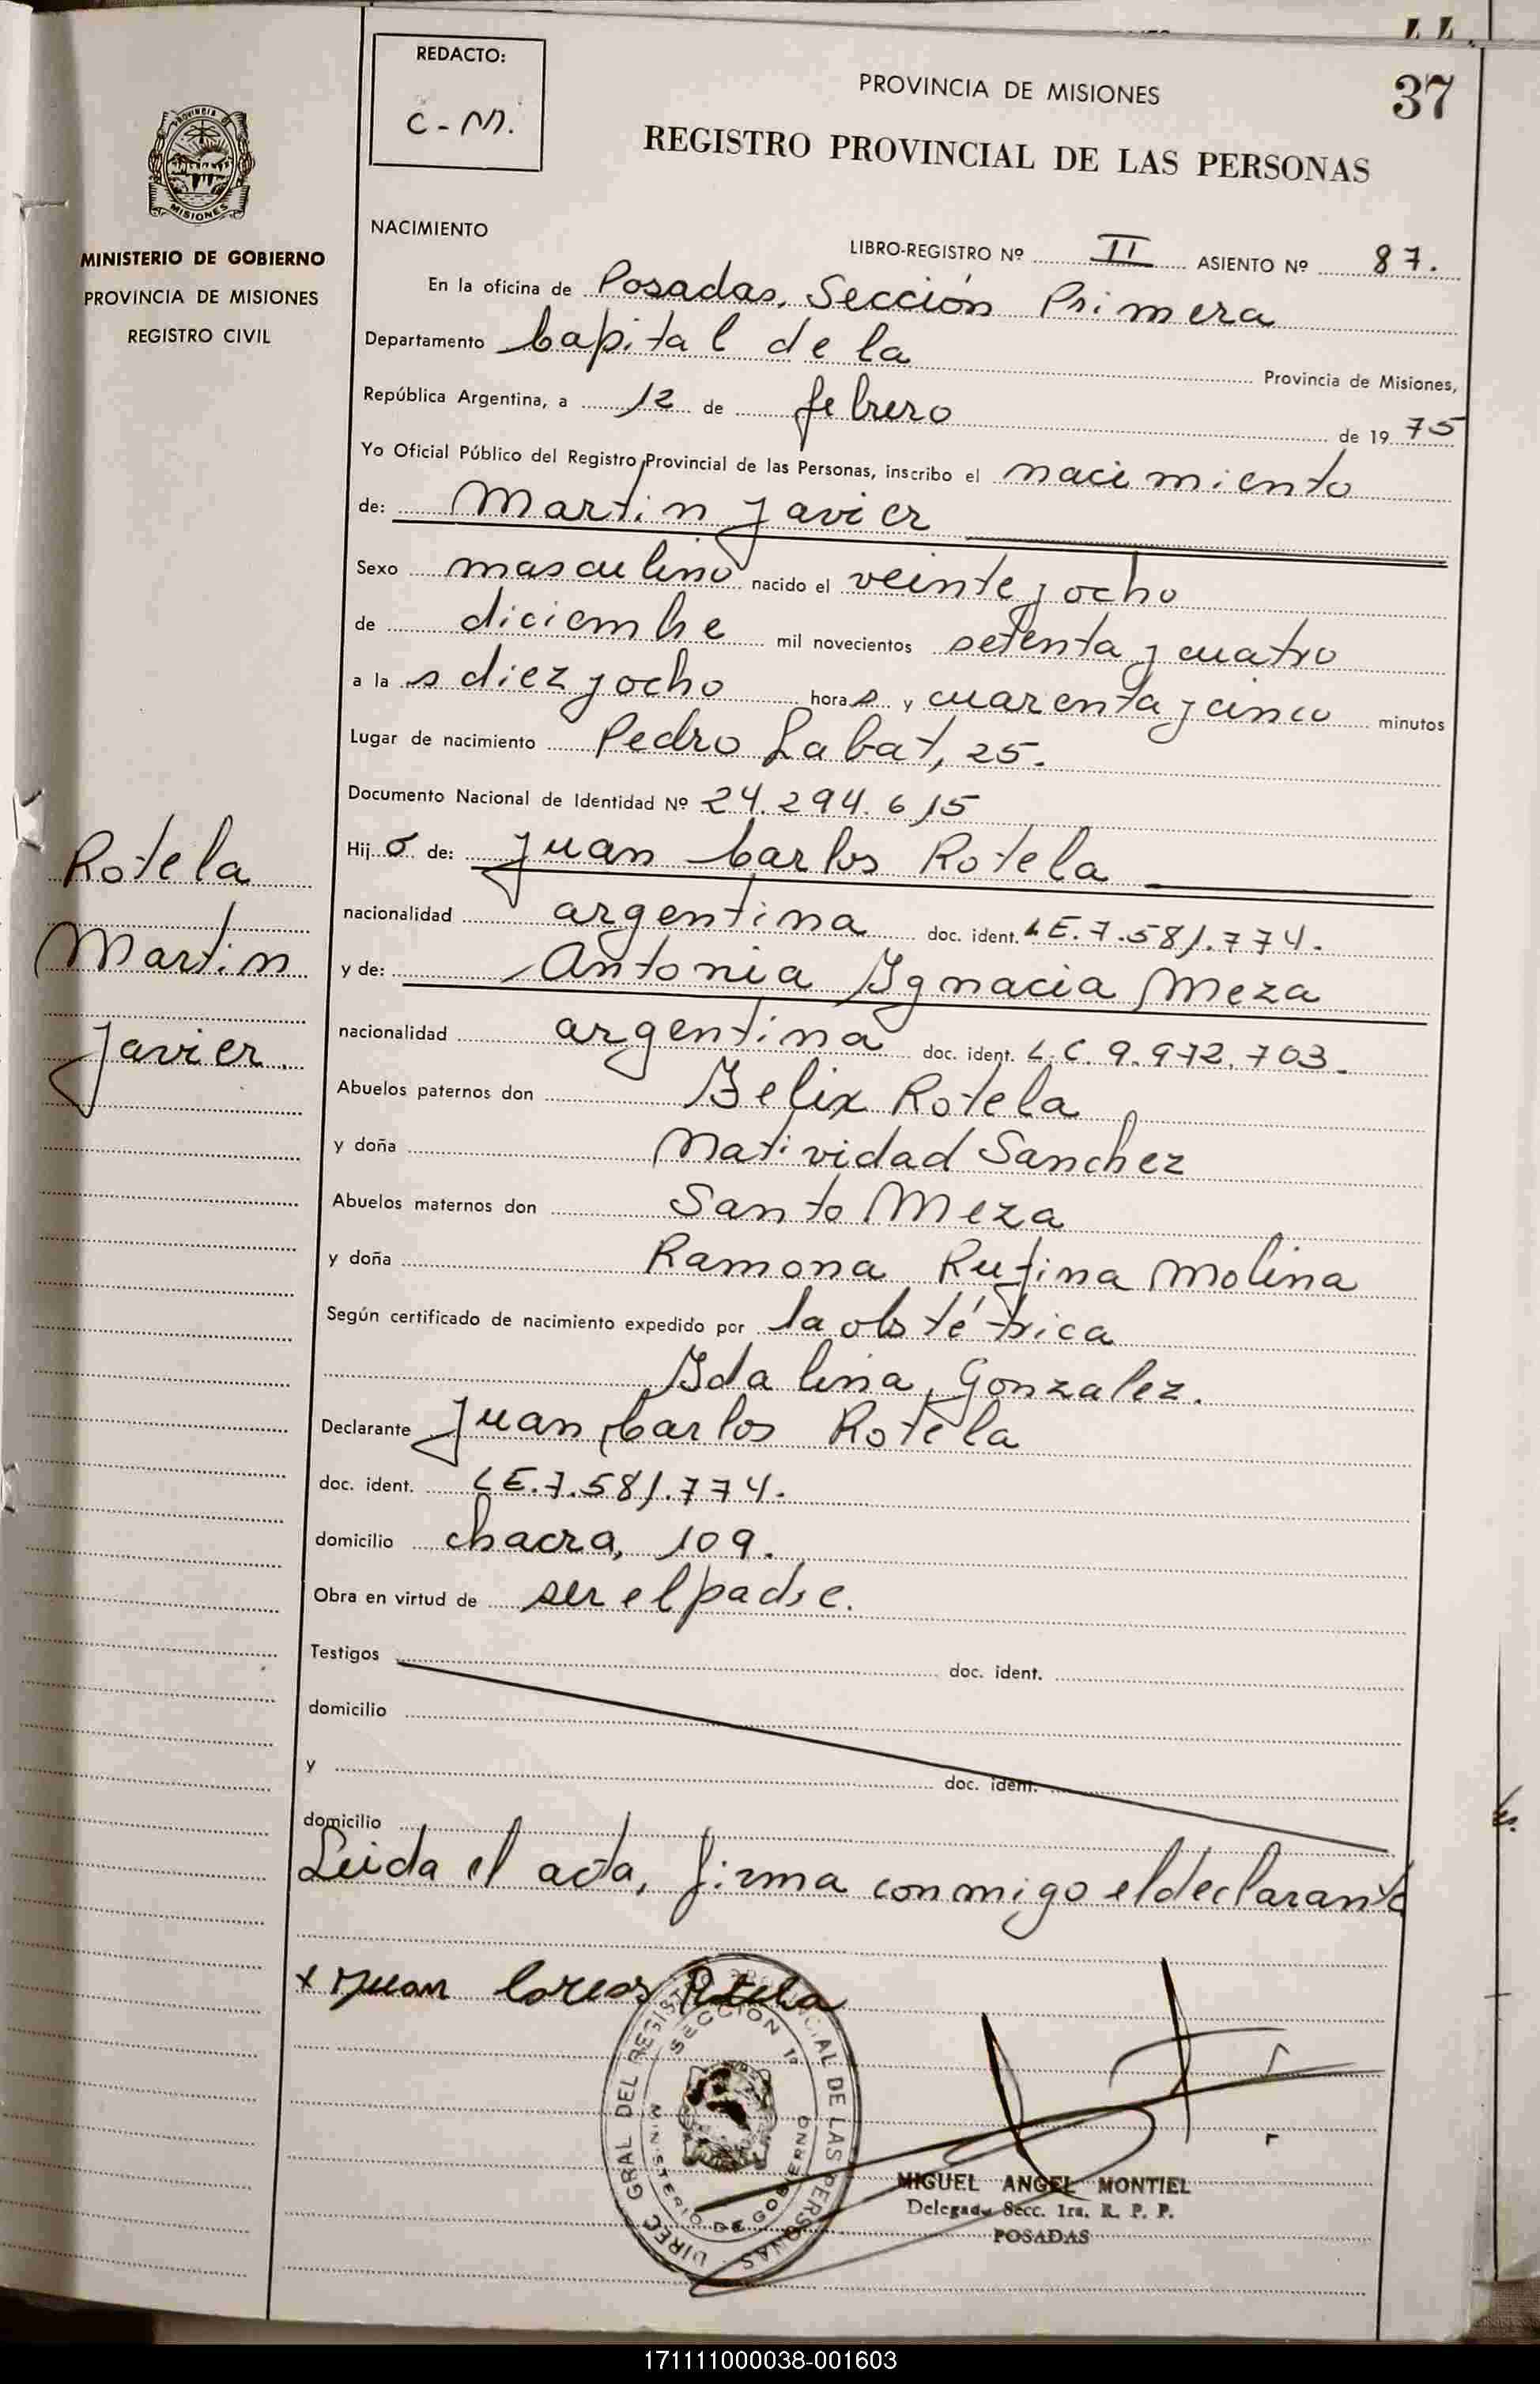 REDACTO:
C-M.
PROVINCIA DE MISIONES
37
REGISTRO PROVINCIAL DE LAS PERSONAS
PROVINCIA DE
MISIONES
MINISTERIO DE GOBIERNO
PROVINCIA DE MISIONES
REGISTRO CIVIL
NACIMIENTO
LIBRO-REGISTRO Nº II ASIENTO Nº 87.
En la oficina de Posadas, Sección Primera
Departamento Capital de la Provincia de Misiones,
República Argentina, a 12 de febrero de 19 75
Yo Oficial Público del Registro Provincial de las Personas, inscribo el nacimiento
de: Martin Javier
Sexo masculino nacido el veinte y ocho
de diciembre mil novecientos setenta y cuatro
a la s diez y ocho hora s y cuarenta y cinco minutos
Lugar de nacimiento Pedro Labat, 25.
Documento Nacional de Identidad Nº 24.294.615
Hij o de: Juan Carlos Rotela
nacionalidad argentina doc. ident. LE.7.581.774.
y de: Antonia Ygnacia Meza
nacionalidad argentina doc. ident. L.C.9.972.703.
Abuelos paternos don Felix Rotela
y doña Natividad Sanchez
Abuelos maternos don Santo Meza
y doña Ramona Rufina Molina
Según certificado de nacimiento expedido por la obstétrica
Ydalina Gonzalez.
Declarante Juan Carlos Rotela
doc. ident. LE.7.581.774.
domicilio chacra, 109.
Obra en virtud de ser el padre.
Testigos doc. ident.
domicilio
y doc. ident.
domicilio
Leida el acta, firma conmigo el declarante
Rotela
Martin
Javier.
x Juan Carlos Rotela
DIREC GRAL DEL REGISTRO PROVINCIAL DE LAS PERSONAS
SECCION 1ª
MINISTERIO DE GOBIERNO
MIGUEL ANGEL MONTIEL
Delegado Secc. 1ra. R. P. P.
POSADAS
171111000038-001603